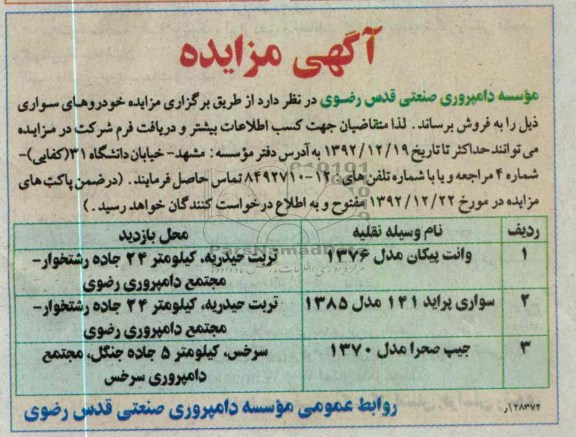 آگهی مزایده
مؤسسه دامپروری صنعتی قدس رضوی در نظر دارد از طریق برگزاری مزایده خودروهای سواری
ذیل را به فروش برساند. لذا متقاضیان جهت کسب اطلاعات بیشتر و دریافت فرم شرکت در مزایده
می توانند حداکثر تا تاریخ ۱۳۹۲/۱۲/۱۹ به آدرس دفتر مؤسسه: مشهد- خیابان دانشگاه ۳۱(کفایی)-
شماره ۴ مراجعه و یا با شماره تلفن های ۱۲-۸۴۹۲۷۱۰ تماس حاصل فرمایند. (درضمن پاکت های
مزایده در مورخ ۱۳۹۲/۱۲/۲۲ مفتوح و به اطلاع درخواست کنندگان خواهد رسید.)
ردیف نام وسیله نقلیه محل بازدید
۱ وانت پیکان مدل ۱۳۷۶ تربت حیدریه، کیلومتر ۲۴ جاده رشتخوار-
مجتمع دامپروری رضوی
۲ سواری پراید ۱۴۱ مدل ۱۳۸۵ تربت حیدریه، کیلومتر ۲۴ جاده رشتخوار-
مجتمع دامپروری رضوی
۳ جیپ صحرا مدل ۱۳۷۰ سرخس، کیلومتر ۵ جاده جنگل، مجتمع
دامپروری سرخس
روابط عمومی مؤسسه دامپروری صنعتی قدس رضوی
۱۲۸۳۷۲/ر